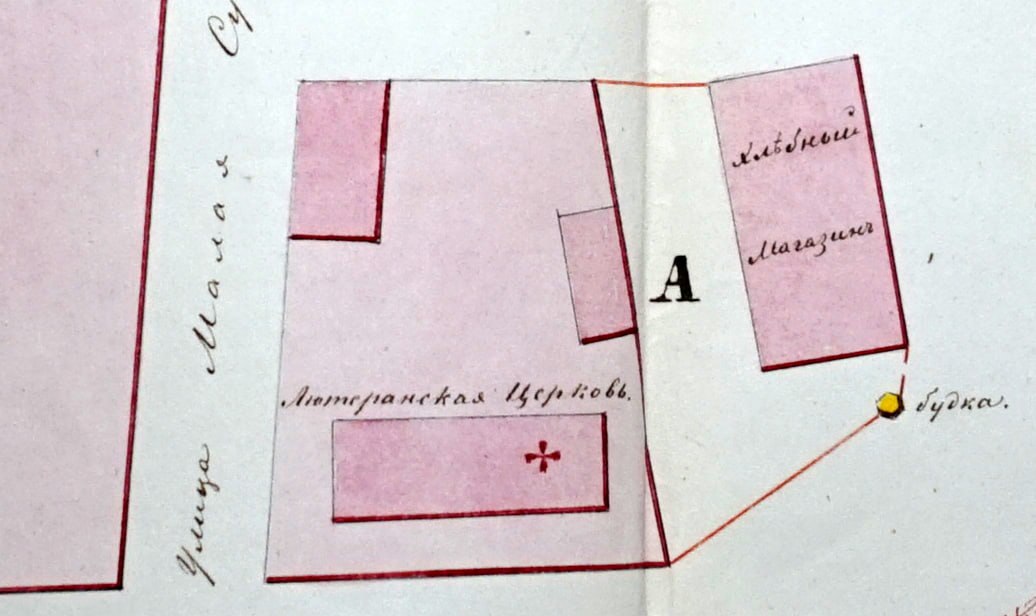 Улица Малая Су
Хлѣбный
Магазинъ
А
Лютеранская Церковь.
будка.